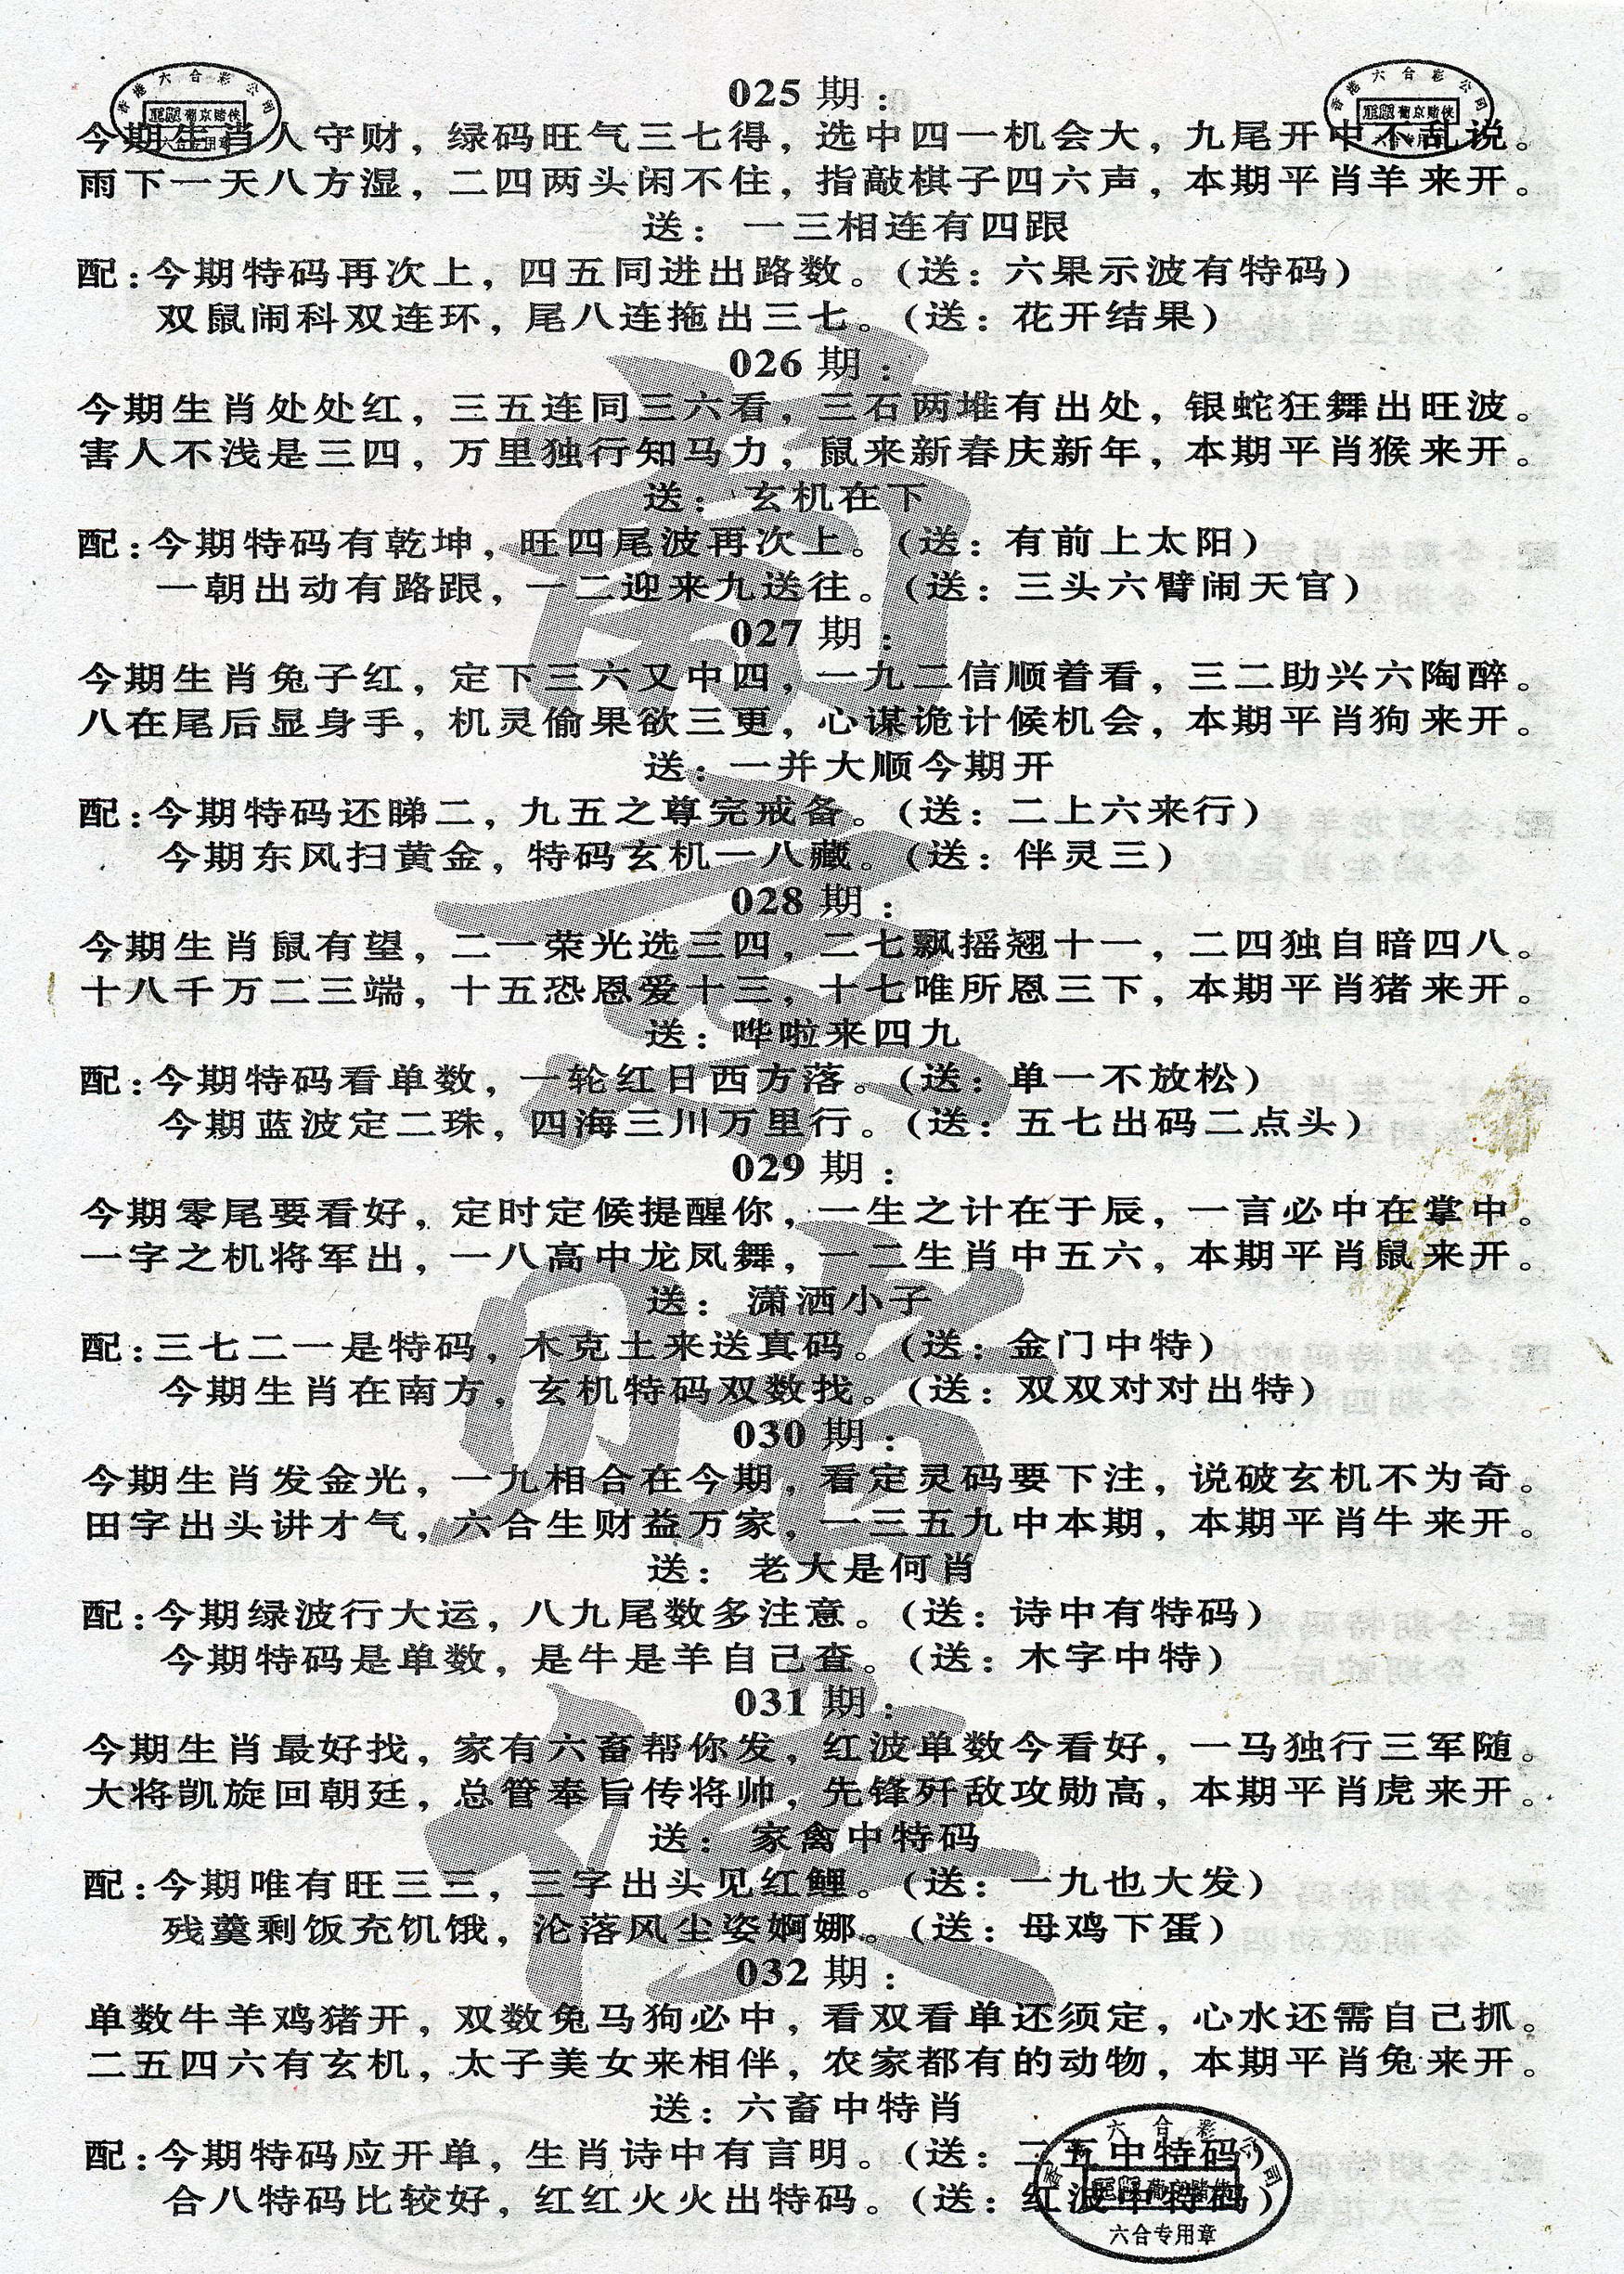 025 期：
今期生肖人守财，绿码旺气三七得，选中四一机会大，九尾开中不乱说。
雨下一天八方湿，二四两头闲不住，指敲棋子四六声，本期平肖羊来开。
送： 一三相连有四跟
配：今期特码再次上，四五同进出路数。（送：六果示波有特码）
双鼠闹科双连环，尾八连拖出三七。（送：花开结果）
026 期：
今期生肖处处红，三五连同三六看，三石两堆有出处，银蛇狂舞出旺波。
害人不浅是三四，万里独行知马力，鼠来新春庆新年，本期平肖猴来开。
送： 玄机在下
配：今期特码有乾坤，旺四尾波再次上。（送：有前上太阳）
一朝出动有路跟，一二迎来九送往。（送：三头六臂闹天官）
027 期：
今期生肖兔子红，定下三六又中四，一九二信顺着看，三二助兴六陶醉。
八在尾后显身手，机灵偷果欲三更，心谋诡计候机会，本期平肖狗来开。
送：一并大顺今期开
配：今期特码还睇二，九五之尊完戒备。（送：二上六来行）
今期东风扫黄金，特码玄机一八藏。（送：伴灵三）
028 期：
今期生肖鼠有望，二一荣光选三四，二七飘摇翘十一，二四独自暗四八。
十八千万二三端，十五恐恩爱十三，十七唯所恩三下，本期平肖猪来开。
送：哗啦来四九
配：今期特码看单数，一轮红日西方落。（送：单一不放松）
今期蓝波定二珠，四海三川万里行。（送：五七出码二点头）
029 期：
今期零尾要看好，定时定候提醒你，一生之计在于辰，一言必中在掌中。
一字之机将军出，一八高中龙凤舞，一二生肖中五六，本期平肖鼠来开。
送： 潇洒小子
配：三七二一是特码，木克土来送真码。（送：金门中特）
今期生肖在南方，玄机特码双数找。（送：双双对对出特）
030 期：
今期生肖发金光，一九相合在今期，看定灵码要下注，说破玄机不为奇。
田字出头讲才气，六合生财益万家，一三五九中本期，本期平肖牛来开。
送： 老大是何肖
配：今期绿波行大运，八九尾数多注意。（送：诗中有特码）
今期特码是单数，是牛是羊自己查。（送：木字中特）
031 期：
今期生肖最好找，家有六畜帮你发，红波单数今看好，一马独行三军随。
大将凯旋回朝廷，总管奉旨传将帅，先锋歼敌攻勋高，本期平肖虎来开。
送： 家禽中特码
配：今期唯有旺三三，三字出头见红鲤。（送：一九也大发）
残羹剩饭充饥饿，沦落风尘姿婀娜。（送：母鸡下蛋）
032 期：
单数牛羊鸡猪开，双数兔马狗必中，看双看单还须定，心水还需自己抓。
二五四六有玄机，太子美女来相伴，农家都有的动物，本期平肖兔来开。
送：六畜中特肖
配：今期特码应开单，生肖诗中有言明。（送：二五中特码）
合八特码比较好，红红火火出特码。（送：红波中特码）
香港六合彩公司
葡京赌侠
六合专用章